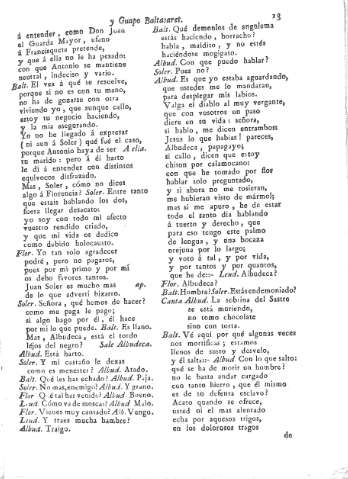 y Guapo Baltasaret. 13
á entender, como Don Juan
el Guarda Mayor, ufano
á Francisqueta pretende,
y que á ella no le ha pesado;
con que Antonio se mantiene
neutral, indeciso y vario.
Balt. El vea á qué se resuelve,
porque si no es con tu mano,
no ha de gozarse con otra
viviendo yo, que aunque callo,
estoy tu negocio haciendo,
y la mia asegurando.
Yo no he llegado á expresar
( ni aun á Soler ) qué fué el caso,
porque Antonio haya de ser A ella.
tu marido: pero á él harto
le di á entender con distintos
equívocos disfrazado.
Mas, Soler, cómo no dices
algo á Florencia? Soler. Entre tanto
que estais hablando los dos,
fuera llegar desacato:
yo soy con todo mi afecto
vuestro rendido criado,
y que mi vida es dedico
como debido holocausto.
Flor. Yo tan solo agradecer
podré, pero no pagaros,
pues por mi primo y por mí
os debo favores tantos.
Juan Soler es mucho mas ap.
de lo que advertí bizarro.
Soler. Señora, qué hemos de hacer?
como me paga le pago;
si algo hago por él, él hace
por mí lo que puede. Balt. Es llano.
Mas, Albudeca, está el tordo
léjos del negro? Sale Albudeca.
Albud. Está harto.
Soler. Y mi castaño le dexas
como es menester? Albud. Atado.
Balt. Qué les has echado? Albud. Paja.
Soler. No mas, enemigo? Albud. Y grano.
Flor. Qué tal has venido? Albud. Bueno.
Laud. Cómo va de moscas? Albud. Malo.
Flor. Vienes muy cansado? Alb. Vengo.
Laud. Y traes mucha hambre?
Albud. Traigo.
Balt. Qué demonios de angulema
estás haciendo, borracho?
habla, maldito, y no estés
haciéndose mogigato.
Albud. Con que puedo hablar?
Soler. Pues no?
Albud. Es que yo estaba aguardando,
que ustedes me lo mandaran,
para desplegar mis labios.
Valga el diablo al muy vergante,
que con vosotros un paso
diere en su vida: señora,
si hablo, me dicen entrambos:
Jesus lo que hablas! pareces,
Albudeca, papagayo;
si callo, dicen que estoy
chiton por calamocano:
con que he tomado por flor
hablar solo preguntado,
y si ahora no me tosieran,
me hubieran visto de mármol;
mas si me apuro, he de estar
todo el santo dia hablando
á tuerto y derecho, que
para eso tengo este palmo
de lengua, y una bocaza
orejuna por lo largo;
y voto á tal, y por vida,
y por tantos y por quantos,
que he de:-- Laud. Albudeca?
Flor. Albudeca?
Balt. Hombre? Soler. Estás endemoniado?
Canta Albud. La sobrina del Sastre
se está muriendo,
no tomo chocolate
sino con torta.
Balt. Vé aquí por qué algunas veces
nos mortificas; estamos
llenos de susto y desvelo,
y él saltar- Albud. Con lo que salto:
qué se ha de morir un hombre?
no le basta andar cargado
con tanto hierro, que él mismo
es de su defensa esclavo?
Acaso quando se ofrece,
usted ni el mas alentado
echa por aquesos trigos,
en los dolorosos tragos
de